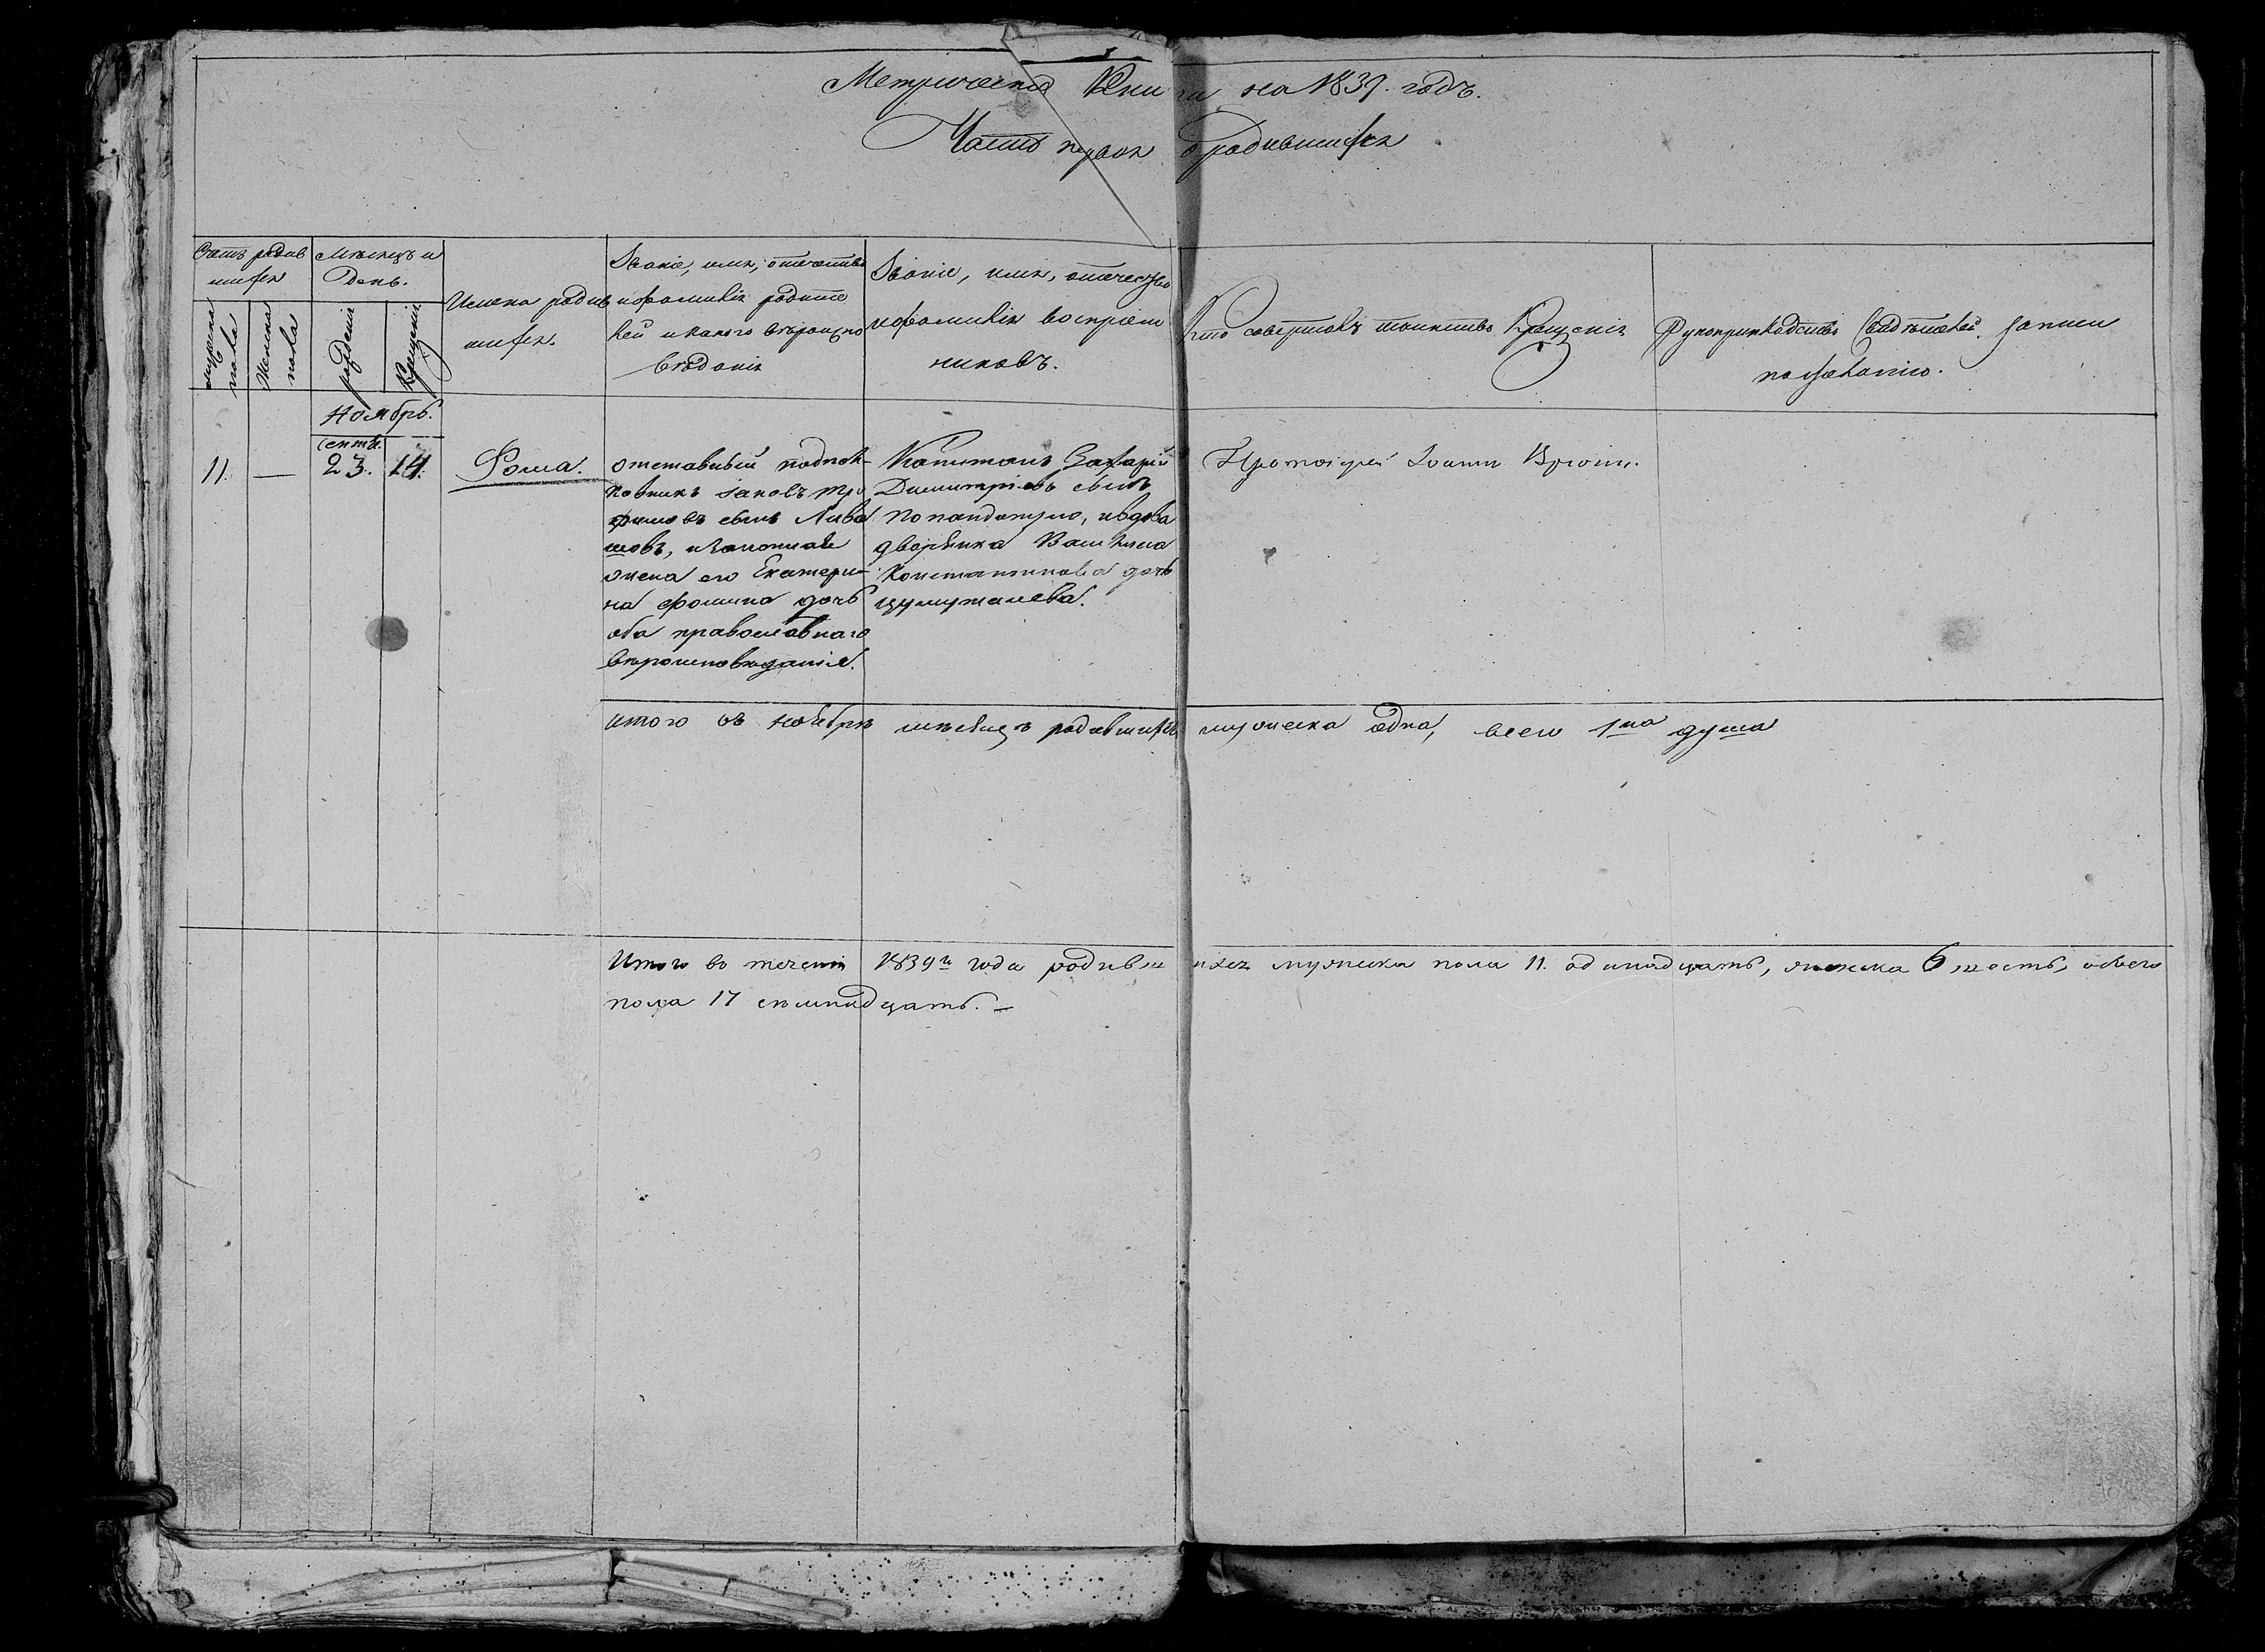 Метрической Книги на 1839. годъ.
Часть первая о родившихся
Счетъ родив
шихся
Мѣсяцъ и
День.
мужеска
пола
Женска
пола
рожденія
Крещенія
Имена родив
шихся.
Званіе, имя, отечество
и фамилія родите
лей и какого вѣроиспо
вѣданія
Званіе, имя, отечество
и фамилія воспріем
никовъ.
Кто совершалъ таинство Крещенія
Рукоприкладство Свидѣтелей записи
по желанію.
Ноябрь.
Септ.
11. — 23. 14.
Фома.
отставный подпол-
ковникъ Іаковъ Тро
фимовъ сынъ
и законная
жена его Екатери-
на Фомина дочь
оба православнаго
вѣроисповѣданія.
Капитанъ Захарій
Димитріевъ сынъ
Попандопуло, и вдова
дворянка
Константинова дочь
Протоіерей Іоаннъ
итого въ ноябрѣ мѣсяцѣ родившихся мужеска одна, всего 1на душа
Итого въ теченіи 1839го года родившихся мужеска пола 11. одинадцать, женска 6 шесть, обоего
пола 17 семнадцать. —